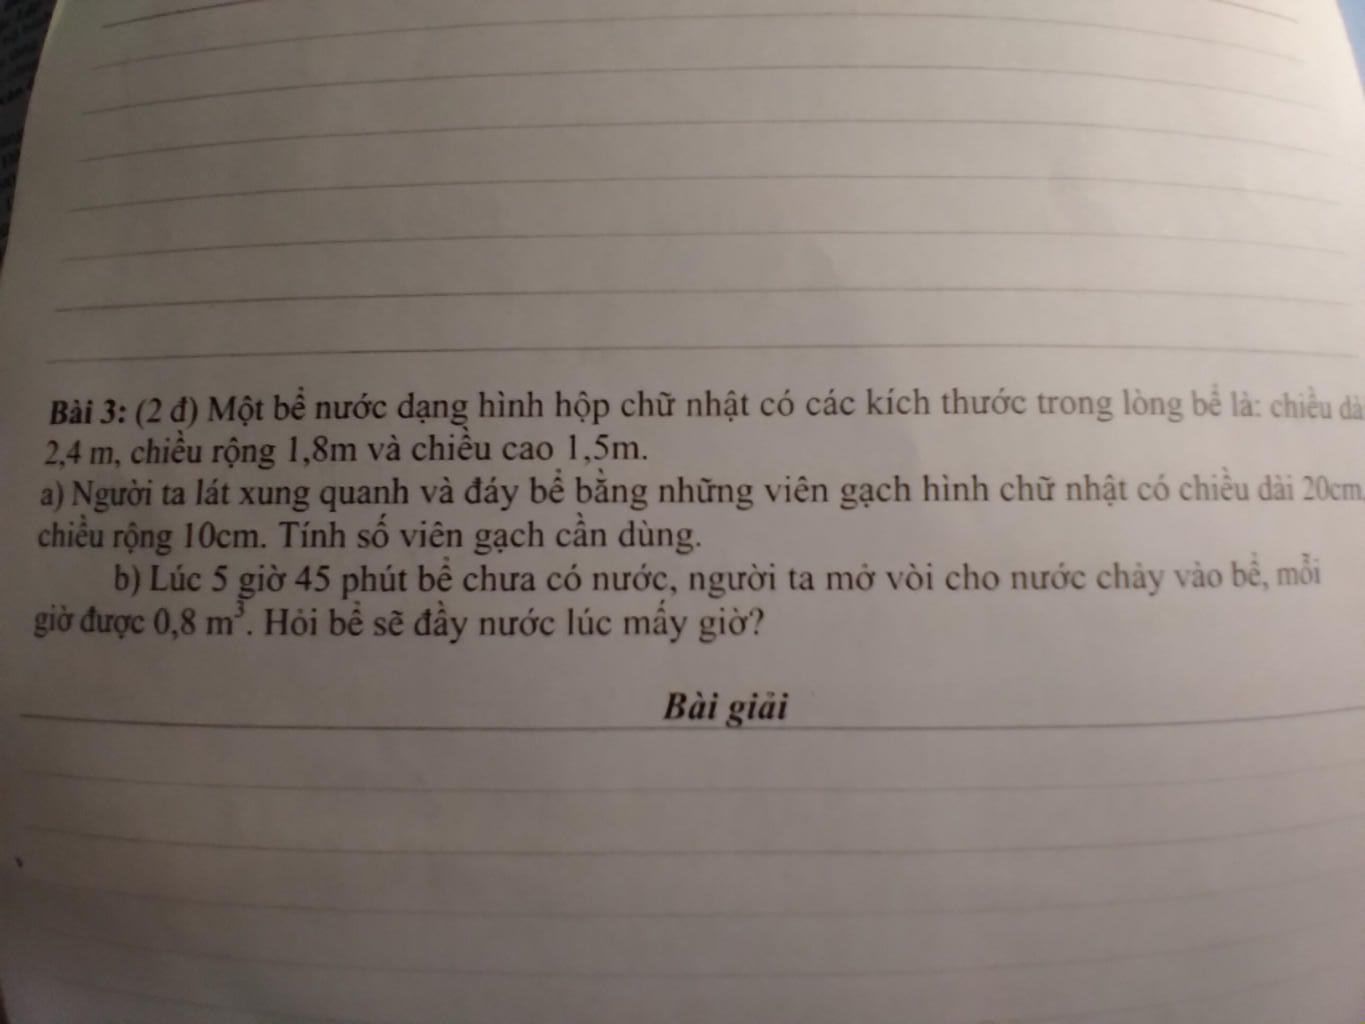 Bài 3: (2 đ) Một bể nước dạng hình hộp chữ nhật có các kích thước trong lòng bể là: chiều dà
2,4 m, chiều rộng 1,8m và chiều cao 1,5m.
a) Người ta lát xung quanh và đáy bể bằng những viên gạch hình chữ nhật có chiều dài 20cm,
chiều rộng 10cm. Tính số viên gạch cần dùng.
b) Lúc 5 giờ 45 phút bể chưa có nước, người ta mở vòi cho nước chảy vào bể, mỗi
giờ được 0,8 m³. Hỏi bể sẽ đầy nước lúc mấy giờ?
Bài giải